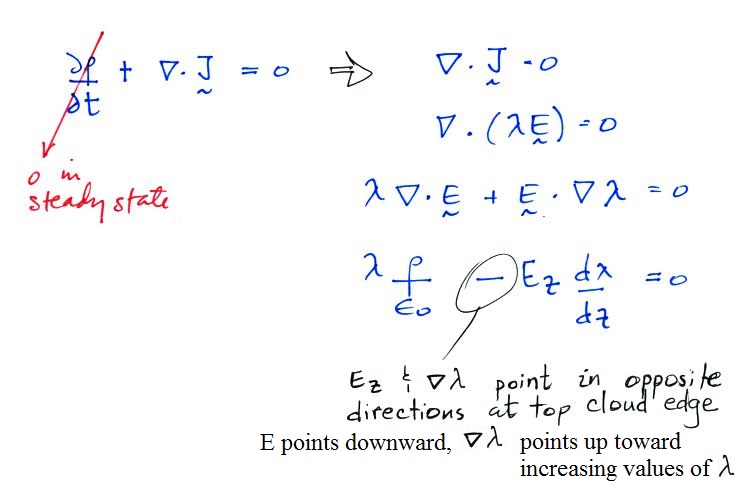 ∂ρ/∂t + ∇·J = 0 ⇒ ∇·J = 0
0 in
steady state
∇·(λE) = 0
λ∇·E + E·∇λ = 0
λ ρ/ε₀ − E_z dλ/dz = 0
E_z & ∇λ point in opposite
directions at top cloud edge
E points downward, ∇λ points up toward
increasing values of λ